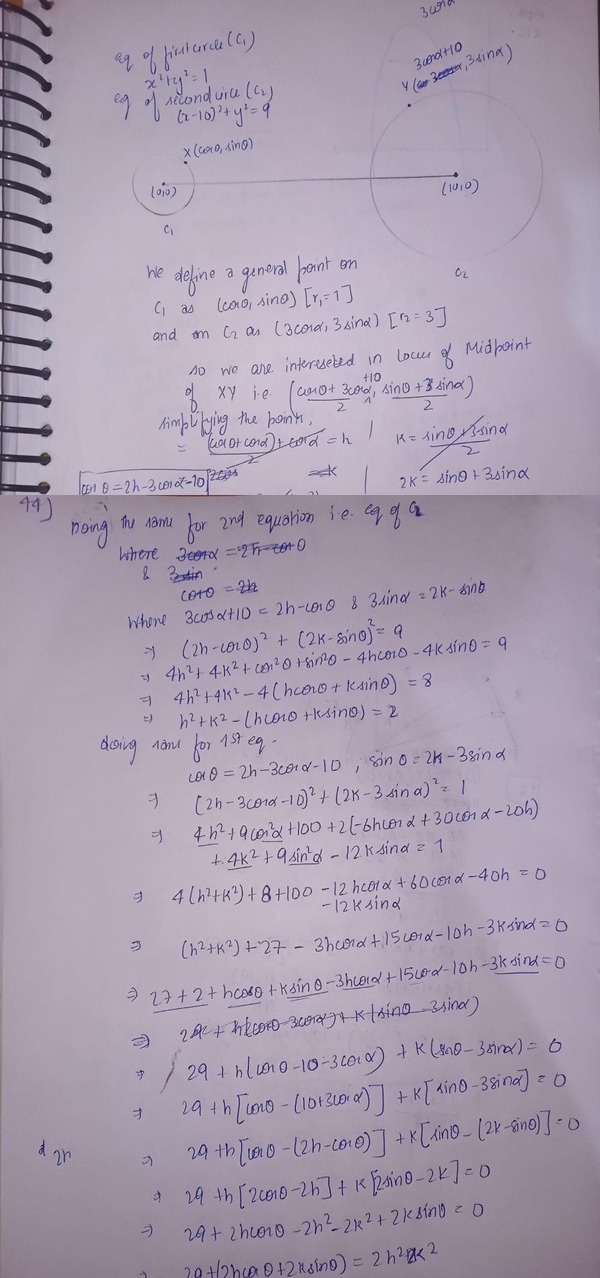 3cosα
eq of first circle (C₁)
x²+y²=1
eq of second circle (C₂)
(x-10)²+y²=9
3cosα+10
Y( , 3sinα)
X(cosθ, sinθ)
(0,0)
(10,0)
C₁
C₂
We define a general point on
C₁ as (cosθ, sinθ) [r₁=1]
and on C₂ as (3cosα, 3sinα) [r₂=3]
so we are intereseted in Locus of Midpoint
of XY i.e. (cosθ+3cosα+10/2, sinθ+3sinα/2)
simplifying the points,
= (cosθ+cosα)+cosα/2 = h | k = sinθ+3sinα/2
cosθ = 2h-3cosα-10 | 2k = sinθ+3sinα
44)
Doing the same for 2nd equation i.e. eq of C₂
where 3cosα = 2h-cosθ
& 3sin
cosθ = 2h
where 3cosα+10 = 2h-cosθ & 3sinα = 2k-sinθ
⇒ (2h-cosθ)² + (2k-sinθ)² = 9
⇒ 4h²+4k²+cos²θ+sin²θ-4hcosθ-4ksinθ = 9
⇒ 4h²+4k²-4(hcosθ+ksinθ) = 8
⇒ h²+k²-(hcosθ+ksinθ) = 2
doing same for 1st eq.
cosθ = 2h-3cosα-10 , sinθ = 2k-3sinα
⇒ (2h-3cosα-10)²+(2k-3sinα)² = 1
⇒ 4h²+9cos²α+100+2(-6hcosα+30cosα-20h)
+4k²+9sin²α-12ksinα = 1
⇒ 4(h²+k²)+8+100-12hcosα+60cosα-40h = 0
-12ksinα
⇒ (h²+k²)+27-3hcosα+15cosα-10h-3ksinα=0
⇒ 27+2+hcosθ+ksinθ-3hcosα+15cosα-10h-3ksinα=0
⇒ 29+h(cosθ-3cosα)+k(sinθ-3sinα)
⇒ 29+h(cosθ-10-3cosα)+k(sinθ-3sinα) = 0
⇒ 29+h[cosθ-(10+3cosα)]+k[sinθ-3sinα] = 0
⇒ 29+h[cosθ-(2h-cosθ)]+k[sinθ-(2k-sinθ)]=0
d 2h
⇒ 29+h[2cosθ-2h]+k[2sinθ-2k]=0
⇒ 29+2hcosθ-2h²-2k²+2ksinθ=0
⇒ 29+(2hcosθ+2ksinθ) = 2h² k²